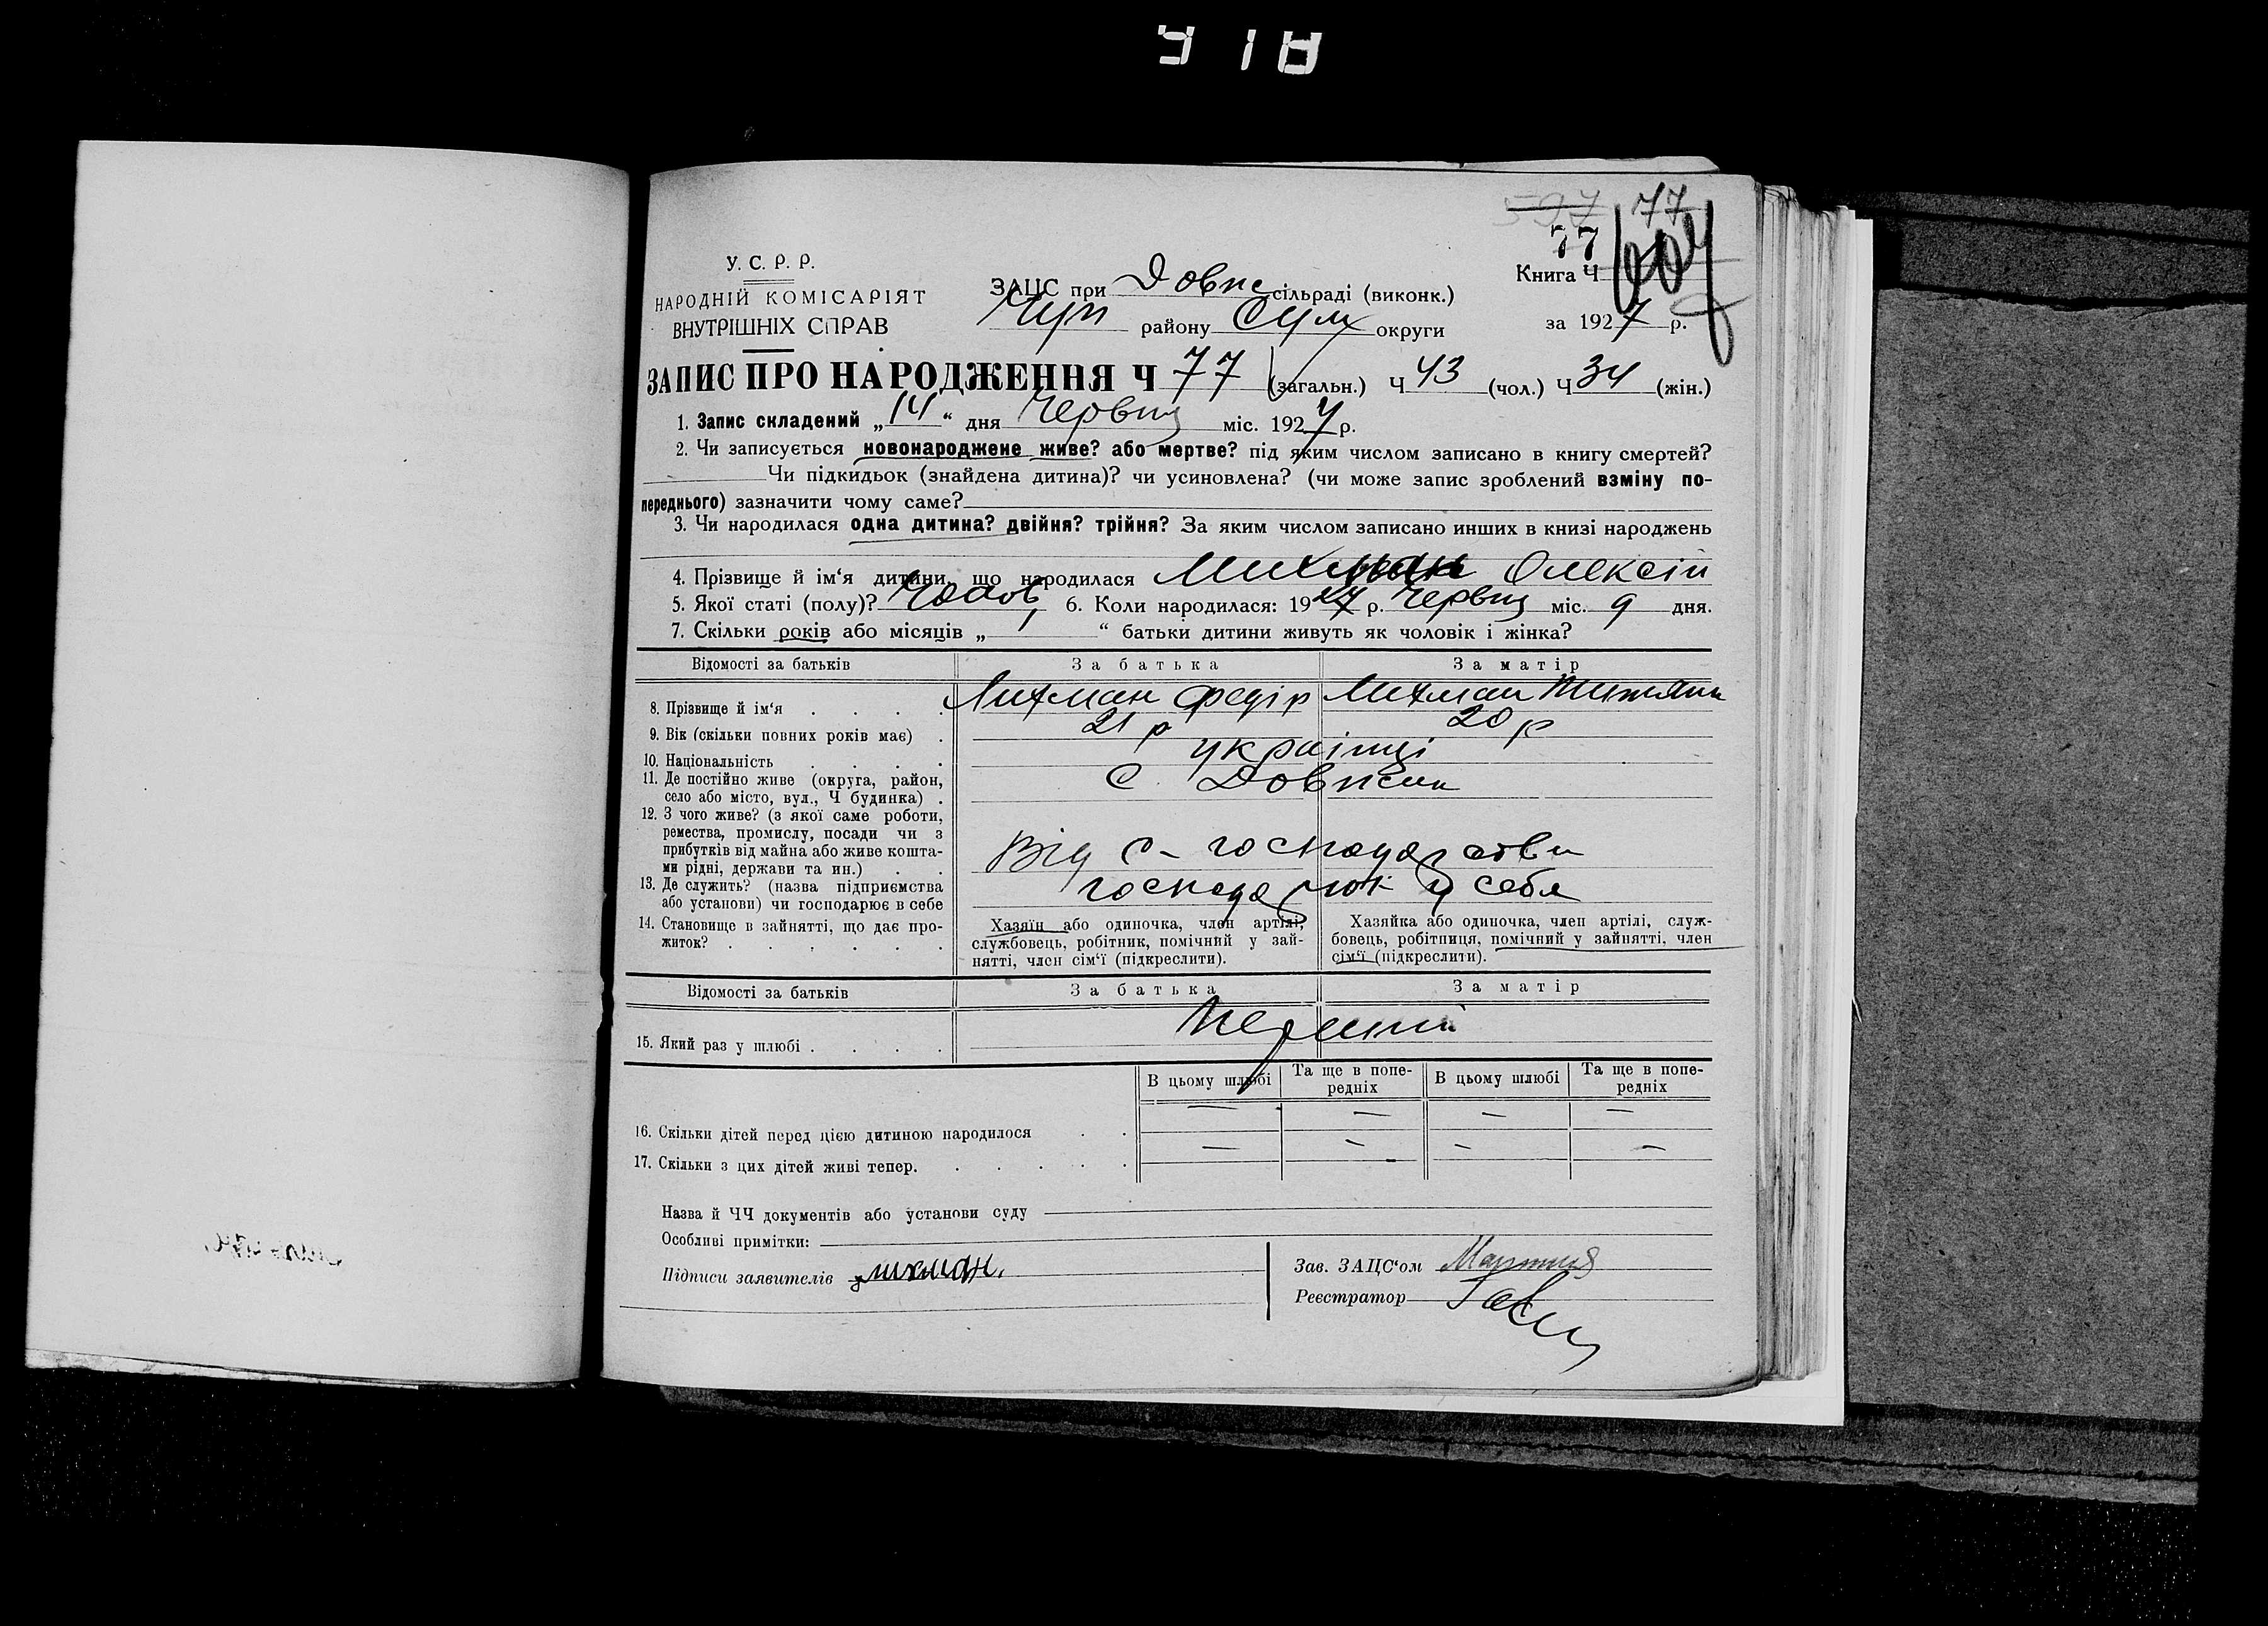 318
597 77
77
607
У. С. Р. Р.
НАРОДНІЙ КОМІСАРІЯТ
ВНУТРІШНІХ СПРАВ
ЗАЦС при Довж сільраді (виконк.)
Чуп району Сум округи
Книга Ч
за 1927 р.
ЗАПИС ПРО НАРОДЖЕННЯ Ч 77 (загальн.) Ч 43 (чол.) Ч 34 (жін.)
1. Запис складений „14“ дня Червня міс. 1927 р.
2. Чи записується новонароджене живе? або мертве? під яким числом записано в книгу смертей?
Чи підкидьок (знайдена дитина)? чи усиновлена? (чи може запис зроблений взміну по-
переднього) зазначити чому саме?
3. Чи народилася одна дитина? двійня? трійня? За яким числом записано инших в книзі народжень
4. Прізвище й ім‘я дитини, що народилася Лихман Олексій
5. Якої статі (полу)? Чолов, 6. Коли народилася: 1927 р. Червня міс. 9 дня.
7. Скільки років або місяців „ 1 “ батьки дитини живуть як чоловік і жінка?
Відомості за батьків За батька За матір
8. Прізвище й ім‘я . . . . Лихман Федір Лихман
9. Вік (скільки повних років має) . 21 р 20 р
10. Національність . . . . українці
11. Де постійно живе (округа, район,
село або місто, вул., Ч будинка) . С. Довжик
12. З чого живе? (з якої саме роботи,
ремества, промислу, посади чи з
прибутків від майна або живе кошта-
ми рідні, держави та ин.) . . Від с-господарства
13. Де служить? (назва підприємства
або установи) чи господарює в себе у себе
14. Становище в зайнятті, що дає про-
житок? . . . . . .
Хазяїн або одиночка, член артілі,
службовець, робітник, помічний у зай-
нятті, член сім‘ї (підкреслити).
Хазяйка або одиночка, член артілі, служ-
бовець, робітниця, помічний у зайнятті, член
сім‘ї (підкреслити).
Відомості за батьків За батька За матір
15. Який раз у шлюбі . . . . Перший
В цьому шлюбі Та ще в попе-редніх В цьому шлюбі Та ще в попе-редніх
16. Скільки дітей перед цією дитиною народилося . . — — — —
17. Скільки з цих дітей живі тепер. . . . . . — — — —
Назва й ЧЧ документів або установи суду
Особливі примітки:
Підписи заявителів Лихман.
Зав. ЗАЦС‘ом
Реєстратор